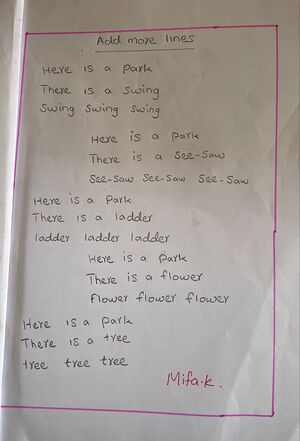 Add more lines
Here is a park
There is a swing
Swing swing swing
Here is a park
There is a see-saw
see-saw see-saw see-saw
Here is a park
There is a ladder
ladder ladder ladder
Here is a park
There is a flower
flower flower flower
Here is a park
There is a tree
tree tree tree
Mifa.k.